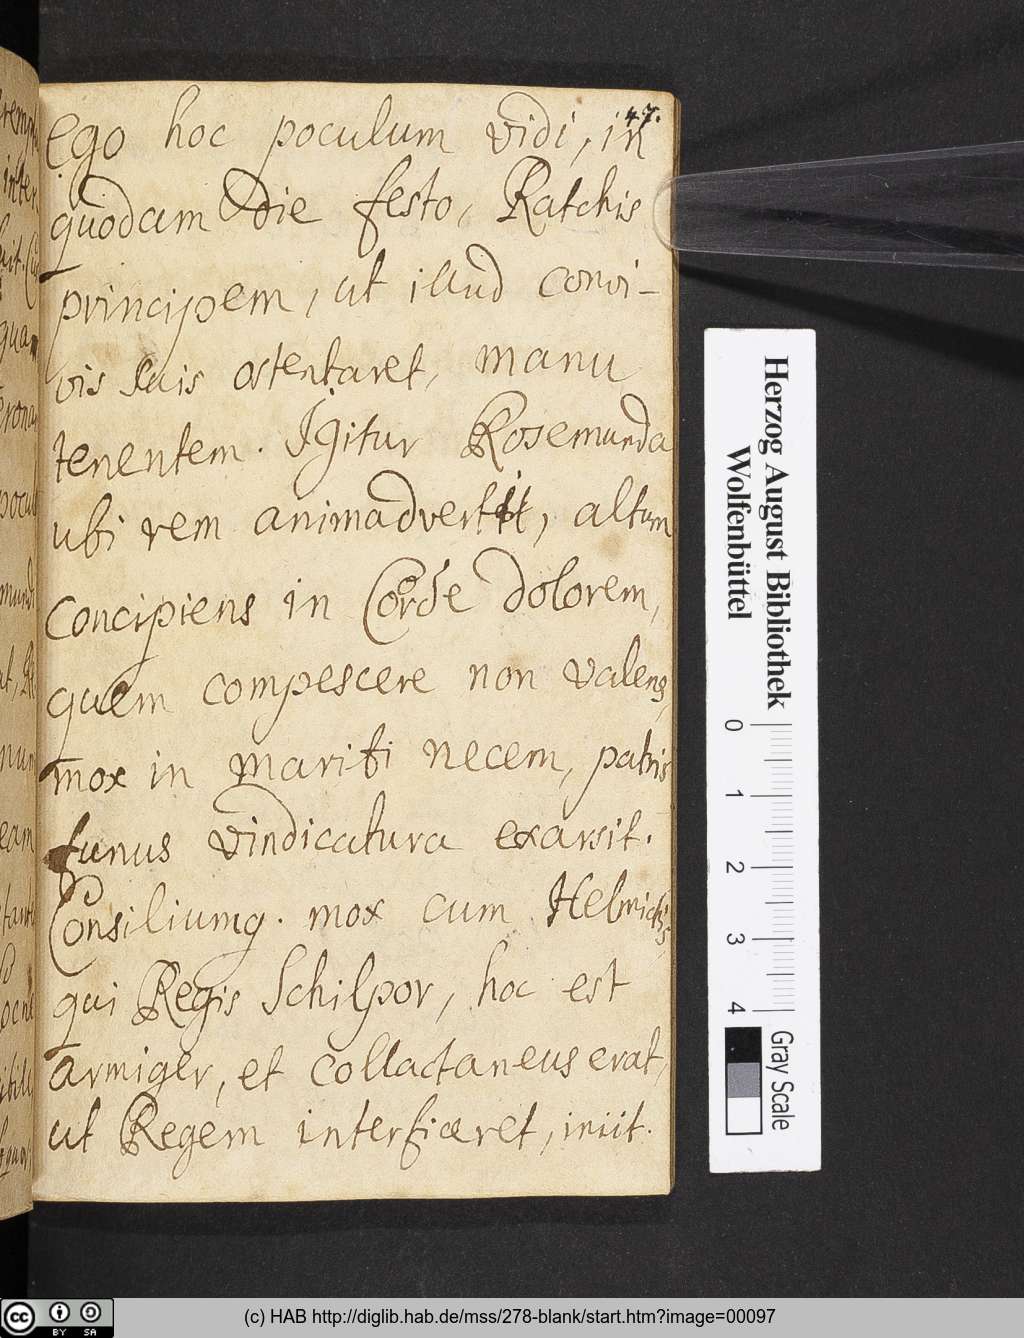 47.
ego hoc poculum vidi, in
quodam Die festo, Ratchis
principem, ut illud convi-
vis suis ostentaret, manu
tenentem. Igitur Rosemunda
ubi rem animadvertit, altum
concipiens in Corde dolorem,
quem compescere non valens,
mox in mariti necem, patris
funus vindicatura exarsit.
Consiliumq. mox cum Helmichis,
qui Regis Schilpor, hoc est
armiger, et collactaneus erat,
ut Regem interficeret, iniit.
Herzog August Bibliothek
Wolfenbüttel
0 1 2 3 4
Gray Scale
cc BY SA
(c) HAB http://diglib.hab.de/mss/278-blank/start.htm?image=00097